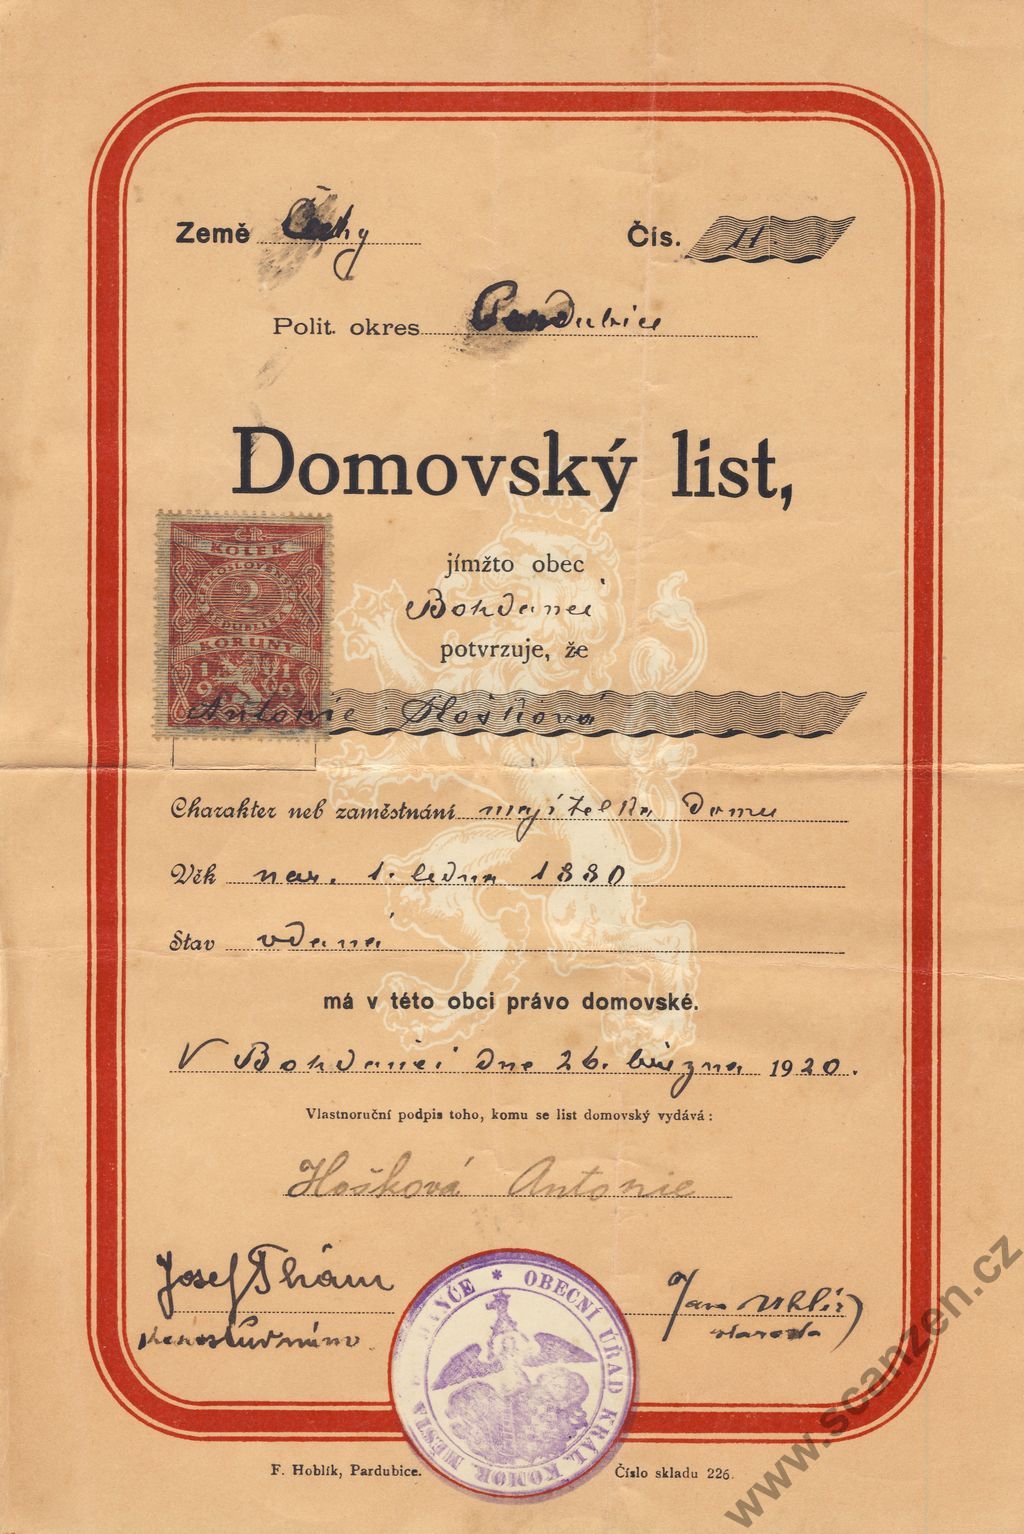 Země Čechy Čís. 11.
Polit. okres Pardubice
Domovský list,
jímžto obec
Bohdaneč
potvrzuje, že
Č.R.
KOLEK
ČESKOSLOVENSKÁ
2
REPUBLIKA
KORUNY
1919
Antonie Hošková
Charakter neb zaměstnání majitelka domu
Věk nar. 1. ledna 1880
Stav vdaná
má v této obci právo domovské.
V Bohdanči dne 26. března 1920.
Vlastnoruční podpis toho, komu se list domovský vydává:
Hošková Antonie
Josef Thám
Jan Uhlíř
starosta
* OBECNÍ ÚŘAD KRÁL. KOMOR. MĚSTA
F. Hoblík, Pardubice.
Číslo skladu 226.
www.scanzen.cz